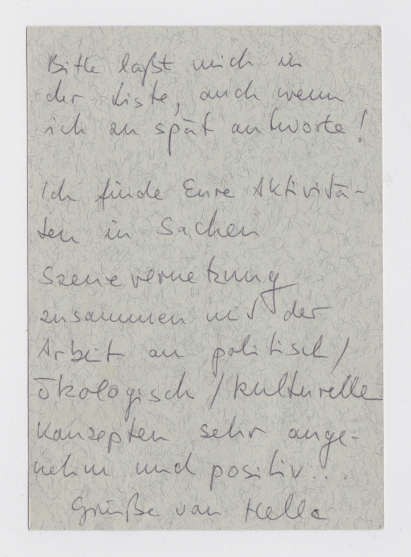 Bitte laßt mich in
der Liste, auch wenn
ich zu spät antworte!
Ich finde Eure Aktivitä-
ten in Sachen
Szenevernetzung
zusammen mit der
Arbeit an politisch/
ökologisch/kulturelle
Konzepten sehr ange-
nehm und positiv...
Grüße von Hella